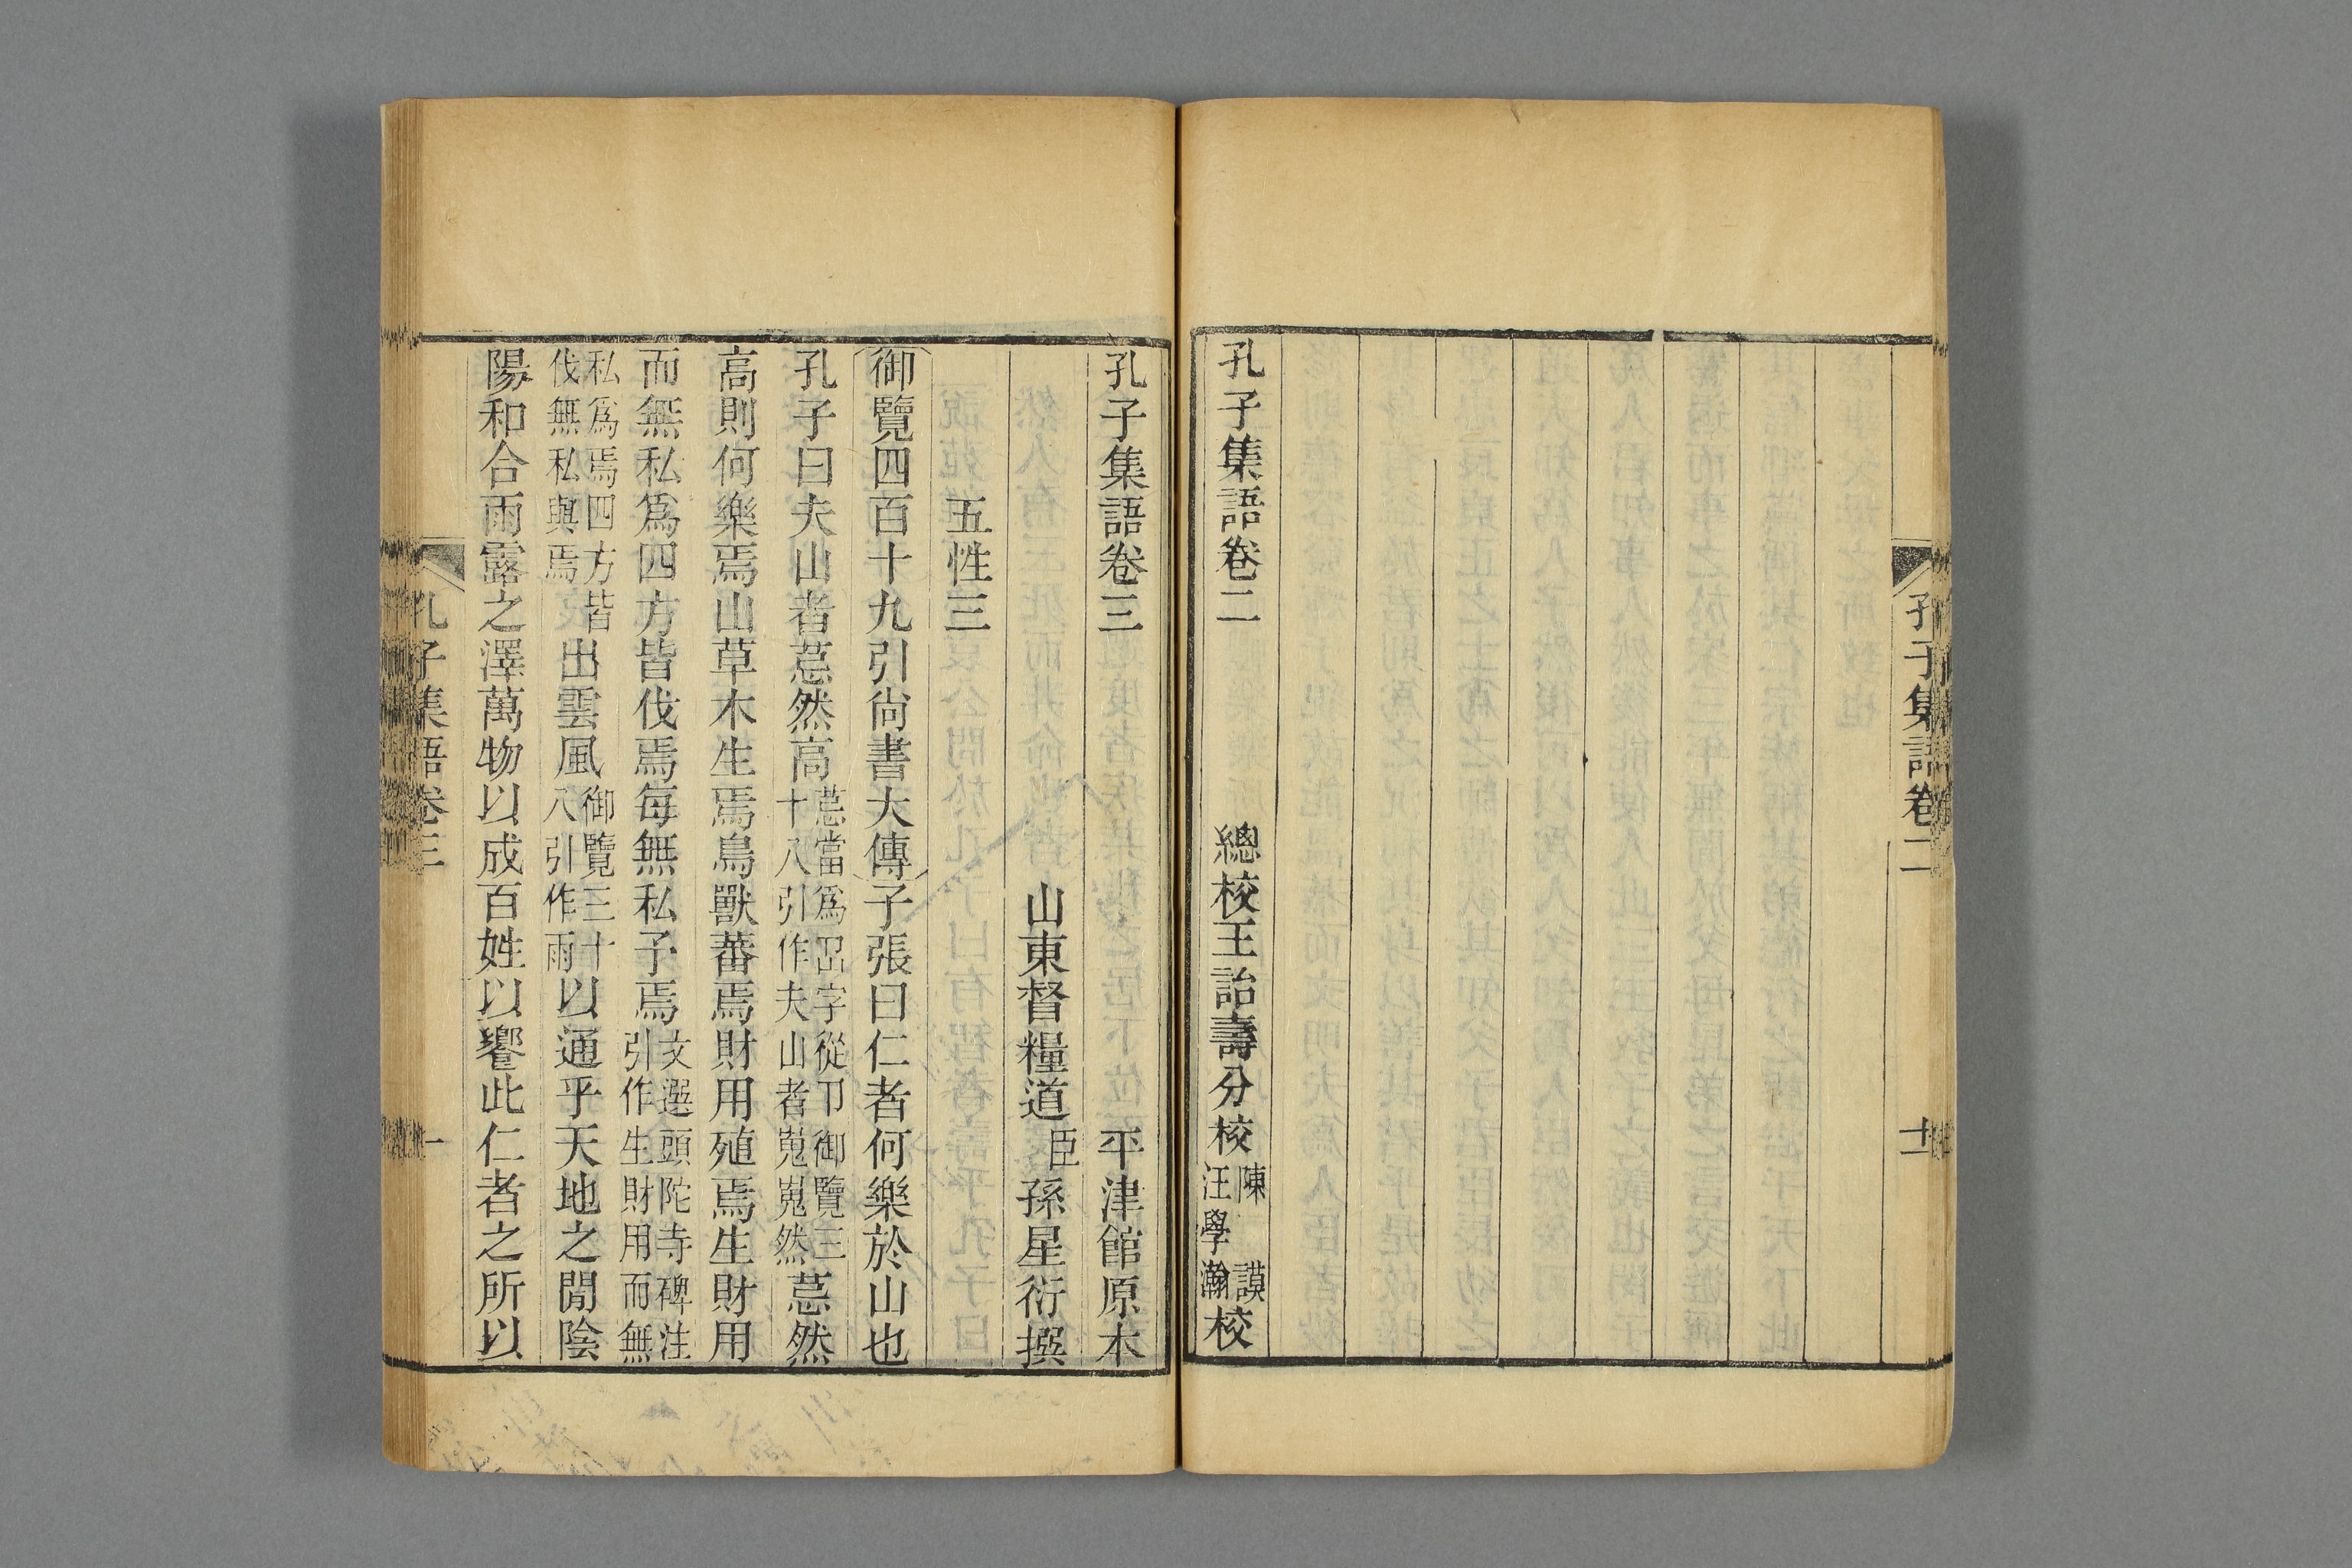 孔子集語卷二
十一
孔子集語卷二 總校王詒壽分校 陳謨 汪學瀚 校
孔子集語卷三 平津館原本
山東督糧道臣孫星衍撰
五性三
御覽四百十九引尚書大傳子張曰仁者何樂於山也
孔子曰夫山者㠜然高 㠜當爲㞮字從卩御覽三十八引作夫山者嵬嵬然 㠜然
高則何樂焉山草木生焉鳥獸蕃焉財用殖焉生財用
而無私爲四方皆伐焉每無私予焉 文選頭陀寺碑注引作生財用而無
私爲焉四方皆伐無私與焉 出雲風 御覽三十八引作雨 以通乎天地之閒陰
陽和合雨露之澤萬物以成百姓以饗此仁者之所以
孔子集語卷三
一